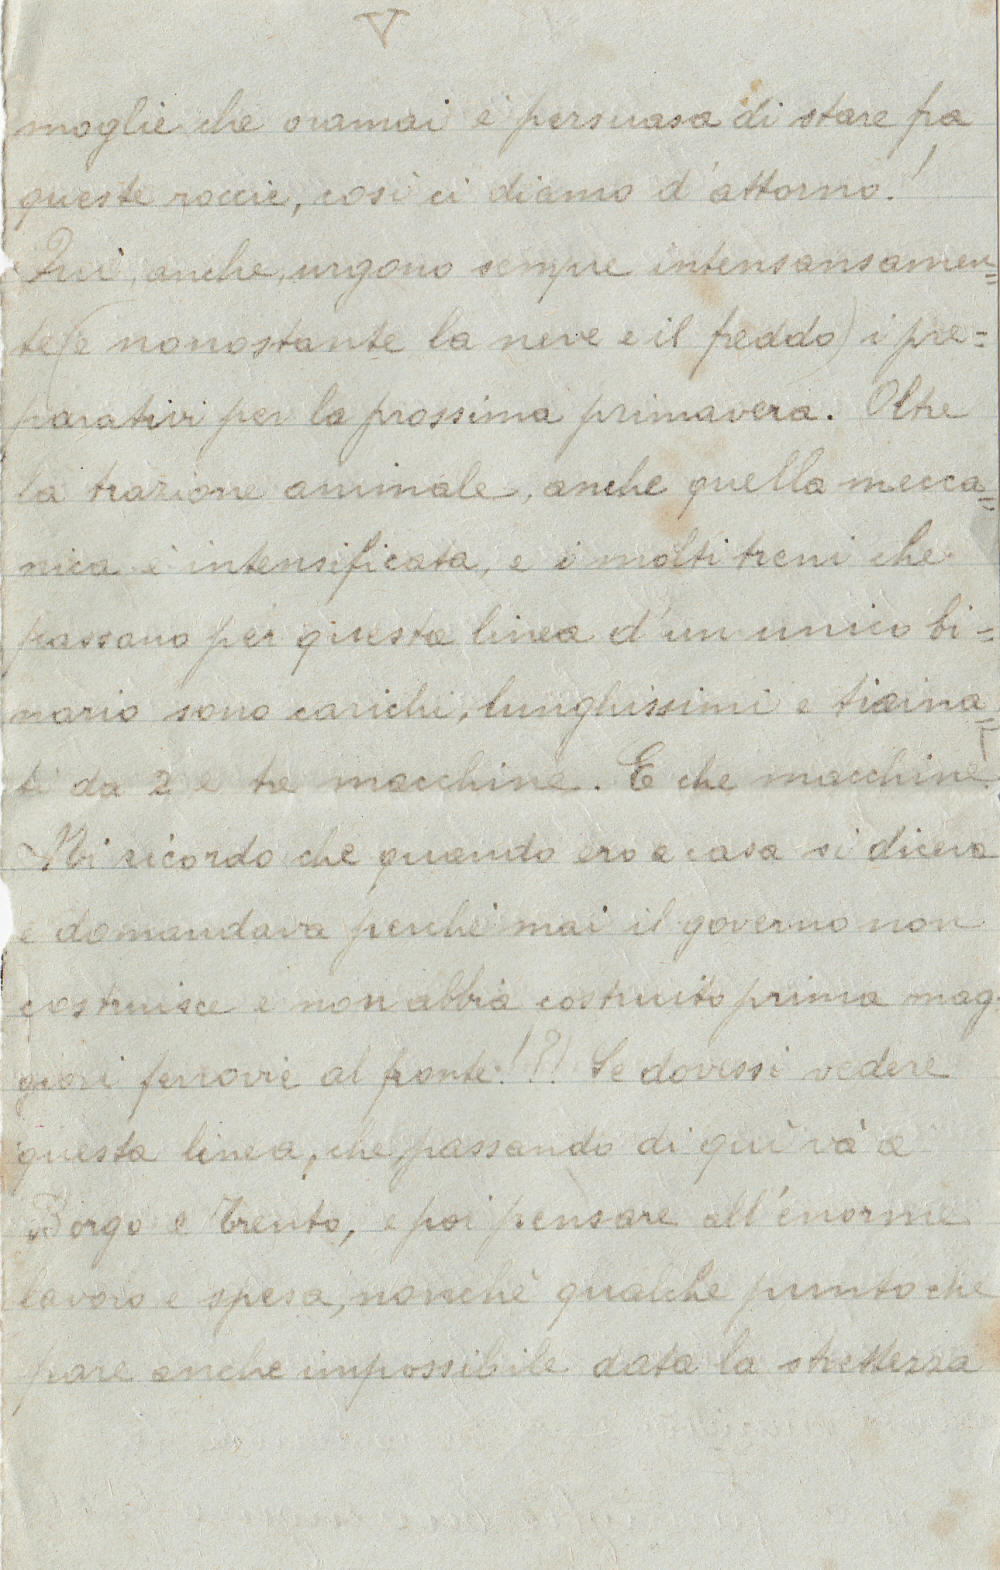 V
moglie che oramai è persuasa di stare fra
queste roccie, così ci diamo d'attorno!
Quì, anche, urgono sempre intensansamen=
te (e nonostante la neve e il freddo) i pre=
parativi per la prossima primavera. Oltre
la trazione animale, anche quella mecca=
nica è intensificata, e i molti treni che
passano per questa linea d'un unico bi=
nario sono carichi, lunghissimi e traina=
ti da 2 e tre macchine. E che macchine!
Mi ricordo che quando ero a casa si diceva
e domandava perchè mai il governo non
costruisce e non abbia costruito prima mag-
giori ferrovie al fronte!?! Se dovessi vedere
questa linea, che passando di quì và a
Borgo e Trento, e poi pensare all'enorme
lavoro e spesa, nonchè qualche punto che
pare anche impossibile data la strettezza